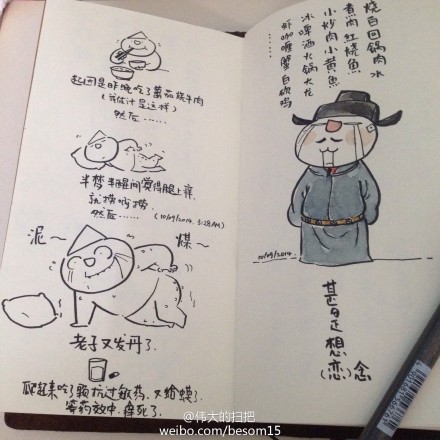 起因是昨晚吃了蕃茄烧牛肉
(我估计是这样)
然后……
半梦半醒间觉得腿上痒
就挠呀挠
然后…… (10/09/2014. 3:28AM)
泥~
煤~
老子又发丹了.
爬起来吃了颗抗过敏药. 又给蟆了.
等药效中. 痒死了.
烧白回锅肉水
煮肉红烧鱼
小炒肉小黄鱼
冰啤酒火锅大龙
虾咖喱蟹白砍鸡
……
10/09/2014.
甚是想
(恋)念
@伟大的扫把
weibo.com/besom15